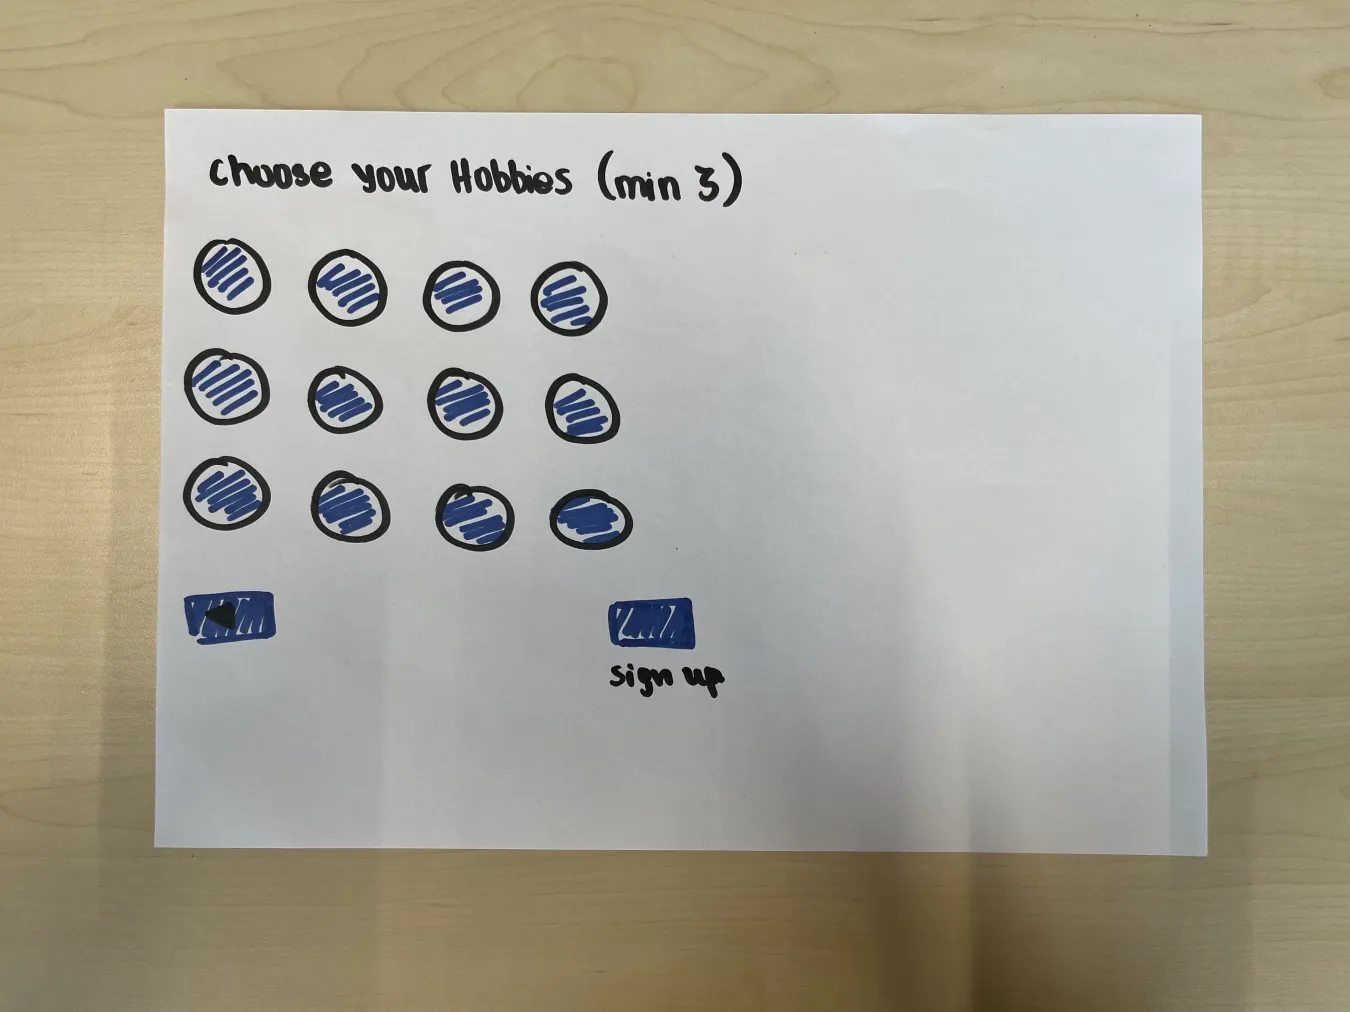 choose your Hobbies (min 3)
sign up